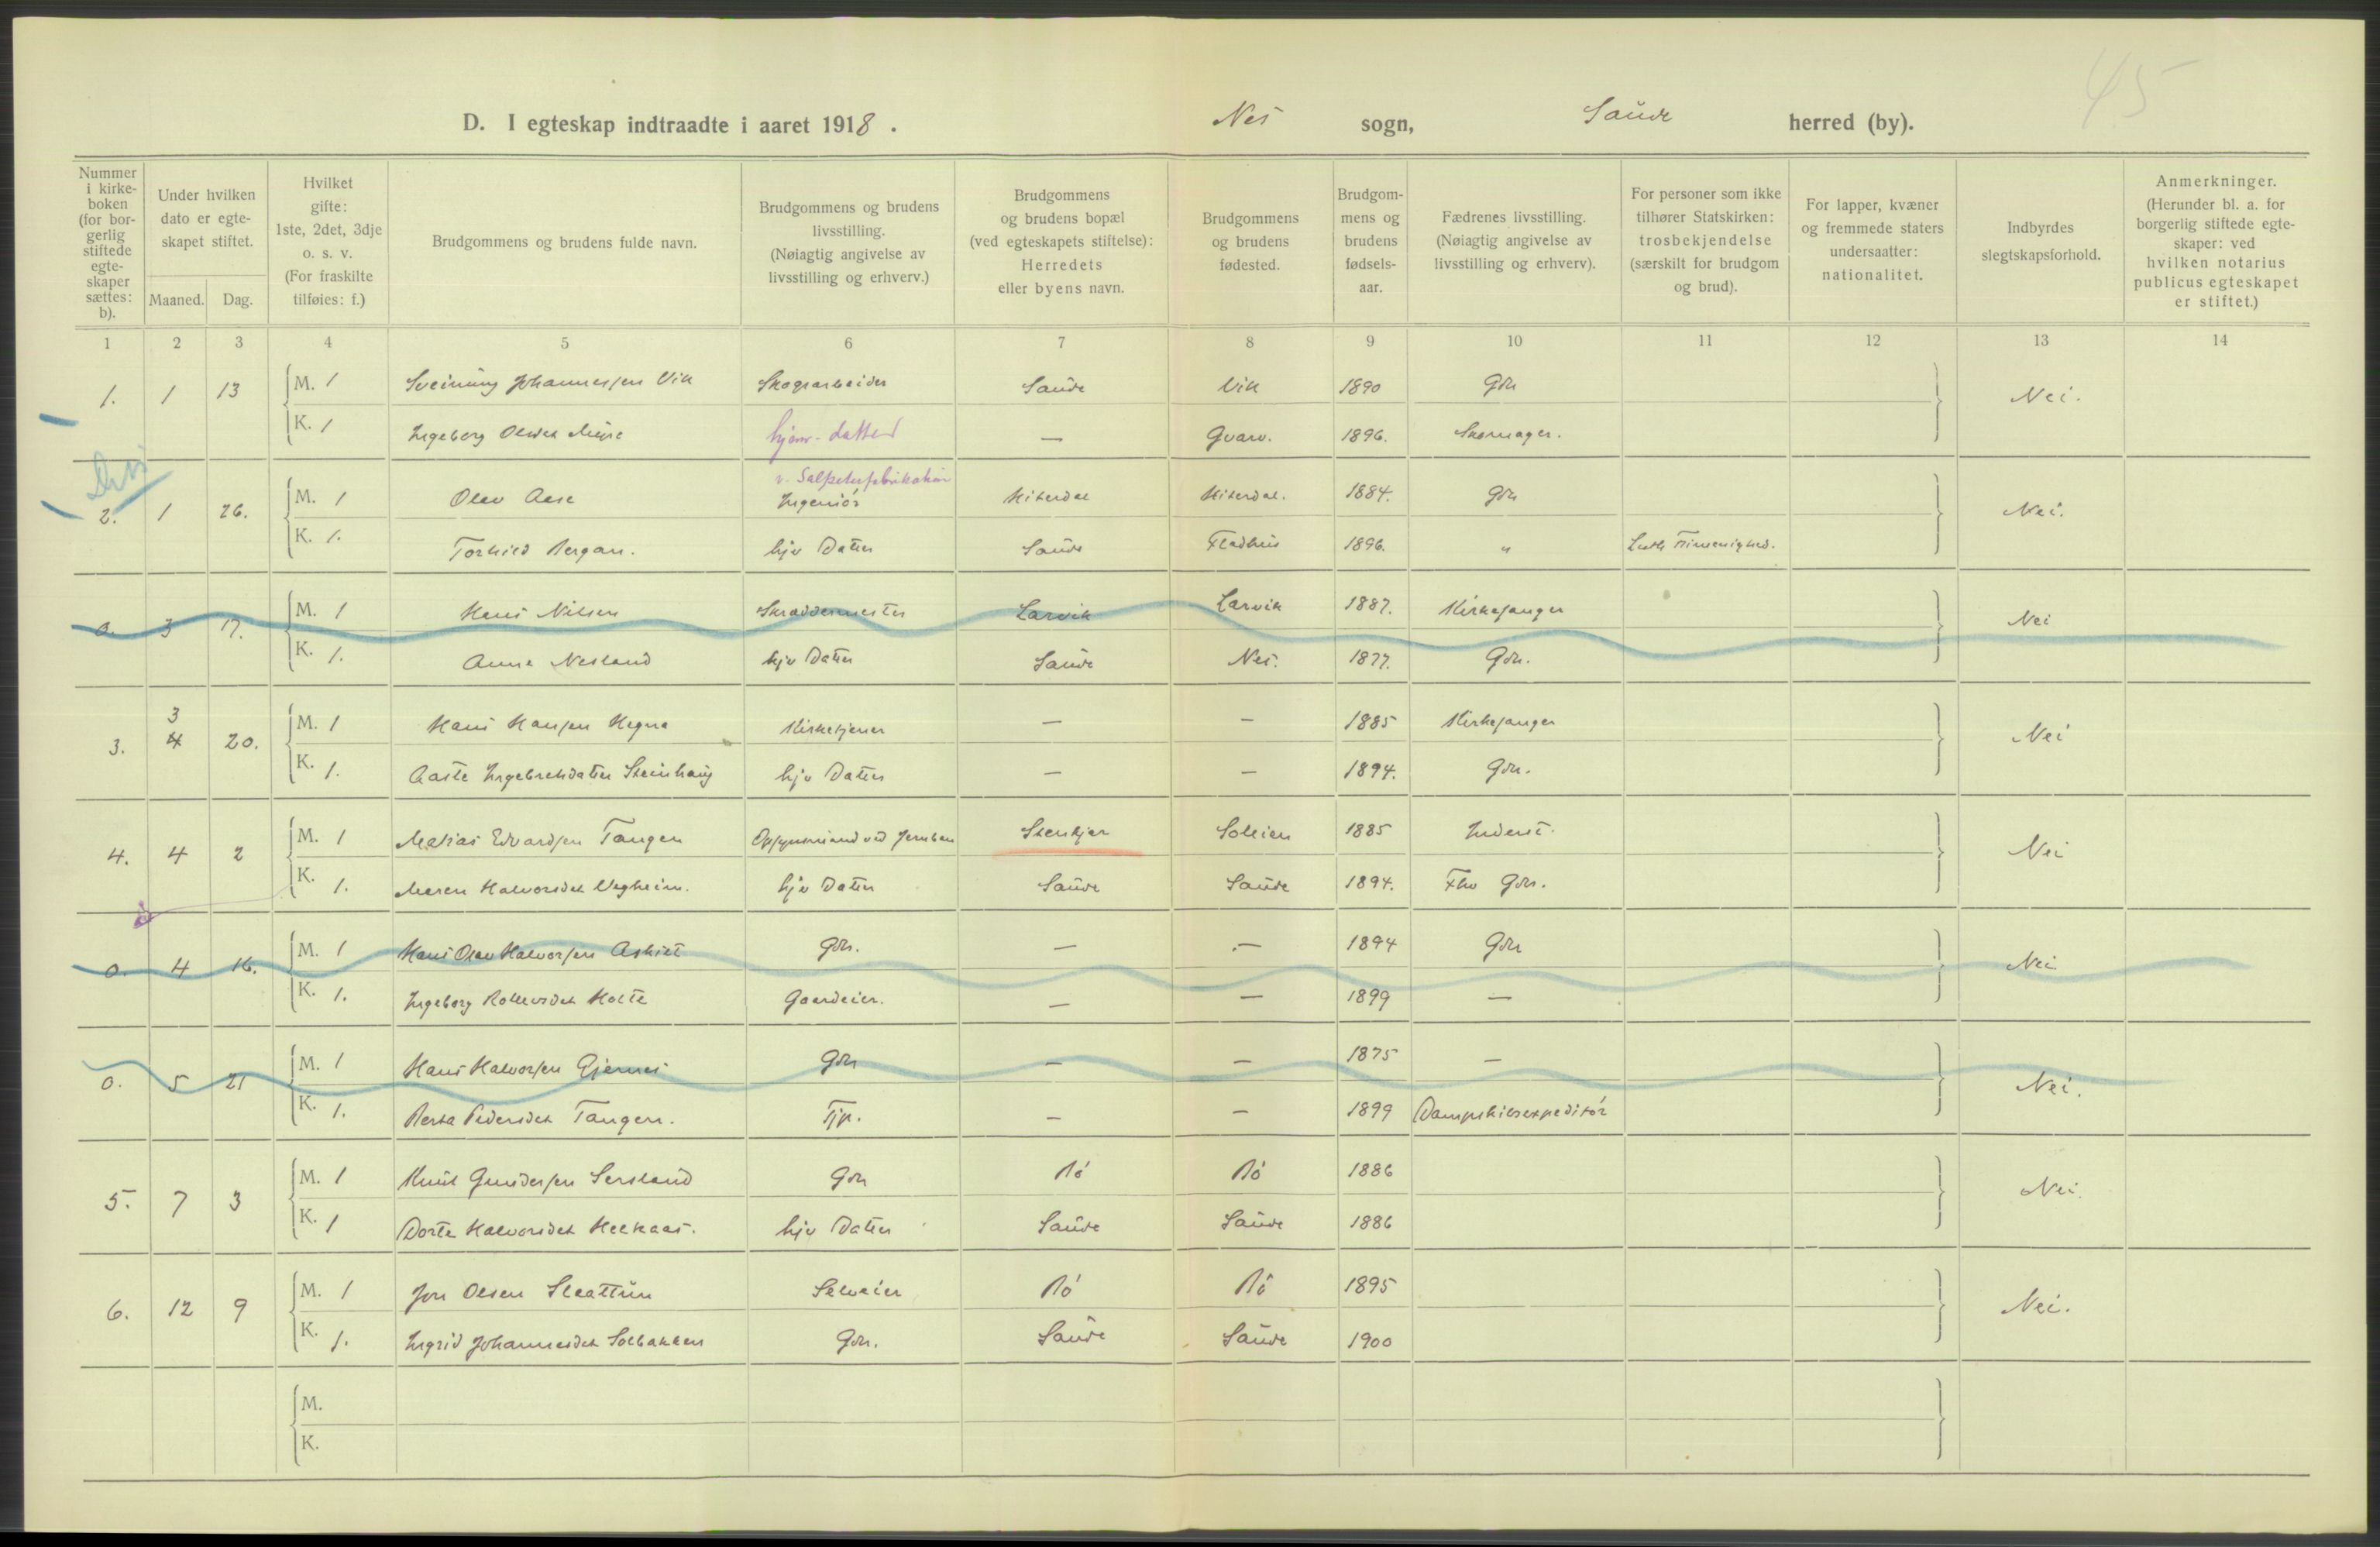 45
D. I egteskap indtraadte i aaret 1918. Nes sogn, Saude herred (by).
Nummer i kirkeboken (for borgerlig stiftede egteskaper sættes: b).
Under hvilken dato er egteskapet stiftet.
Maaned. Dag.
Hvilket gifte: 1ste, 2det, 3dje o. s. v. (For fraskilte tilføies: f.)
Brudgommens og brudens fulde navn.
Brudgommens og brudens livsstilling. (Nøiagtig angivelse av livsstilling og erhverv.)
Brudgommens og brudens bopæl (ved egteskapets stiftelse): Herredets eller byens navn.
Brudgommens og brudens fødested.
Brudgommens og brudens fødselsaar.
Fædrenes livsstilling. (Nøiagtig angivelse av livsstilling og erhverv).
For personer som ikke tilhører Statskirken: trosbekjendelse (særskilt for brudgom og brud).
For lapper, kvæner og fremmede staters undersaatter: nationalitet.
Indbyrdes slegtskapsforhold.
Anmerkninger. (Herunder bl. a. for borgerlig stiftede egteskaper: ved hvilken notarius publicus egteskapet er stiftet.)
1 2 3 4 5 6 7 8 9 10 11 12 13 14
1. 1 13 M. 1 Sveinung Johannessen Vik Skogsarbeider Saude Vik 1890 Gbr Nei.
K. 1 Ingeborg Olsdet hjem. datter — Gvarv. 1896. Skomager.
v. Salpeterfabrikation
2. 1 26. M. 1 Olav Aase Ingeniør Hiterdal Hiterdal. 1884. Gbr Nei.
K. 1. Torhild Bergan. hjv Datter Saude Fladhus 1896. " Luth Frimenighed.
0. 3 17. M. 1 Hans Nilsen Skræddermester Larvik Larvik 1887. Kirkesanger Nei
K. 1. Anne Nesland hjv Datter Saude Nes. 1877. Gbr.
3
3. 4 20. M. 1 Hans Hansen Hegna Kirketjener — — 1885 Kirkesanger Nei
K. 1. Aaste Ingebretsdatter Steinhaug hjv Datter — — 1894. Gbr.
4. 4 2 M. 1 Matias Edvardsen Tangen Opsynsmand ved Jernban Stenkjer Solien 1885 Inderst. Nei
K. 1. Maren Halvorsdet Vegheim. hjv Datter Saude Saude 1894. Fhv Gbr.
0. 4 16. M. 1 Hans Olav Halvorsen Askilt Gbr. — — 1894 Gbr Nei
K. 1. Ingeborg Rollevsdet Holte Gaardeier. — — 1899 —
0. 5 21 M. 1 Hans Halvorsen Gjernes Gbr — — 1875 — Nei.
K. 1. Berta Pedersdet Tangen. Tjp. — — 1899 Dampskibsexpeditør
5. 7 3 M. 1 Knut Gundersen Sersland Gbr Bø Bø 1886 Nei.
K. 1 Dorte Halvorsdet Helkaas. hjv Datter Saude Saude 1886
6. 12 9 M. 1 Jon Olsen Slaattun Selveier Bø Bø 1895 Nei.
K. 1. Ingrid Johannesdet Solbakken Gbr. Saude Saude 1900
M.
K.